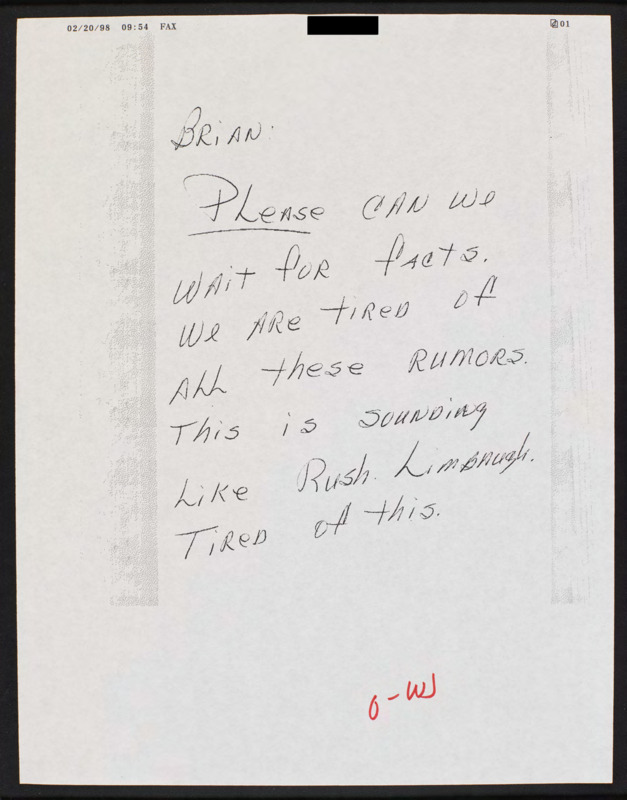 02/20/98 09:54 FAX 01
BRiAN:
PLeAse CAN we
WAit foR fActs.
We ARe tiReD of
ALL these RUMORS.
This is SOUNDiNg
Like Rush Limbaugh.
TiReD of this.
O-W